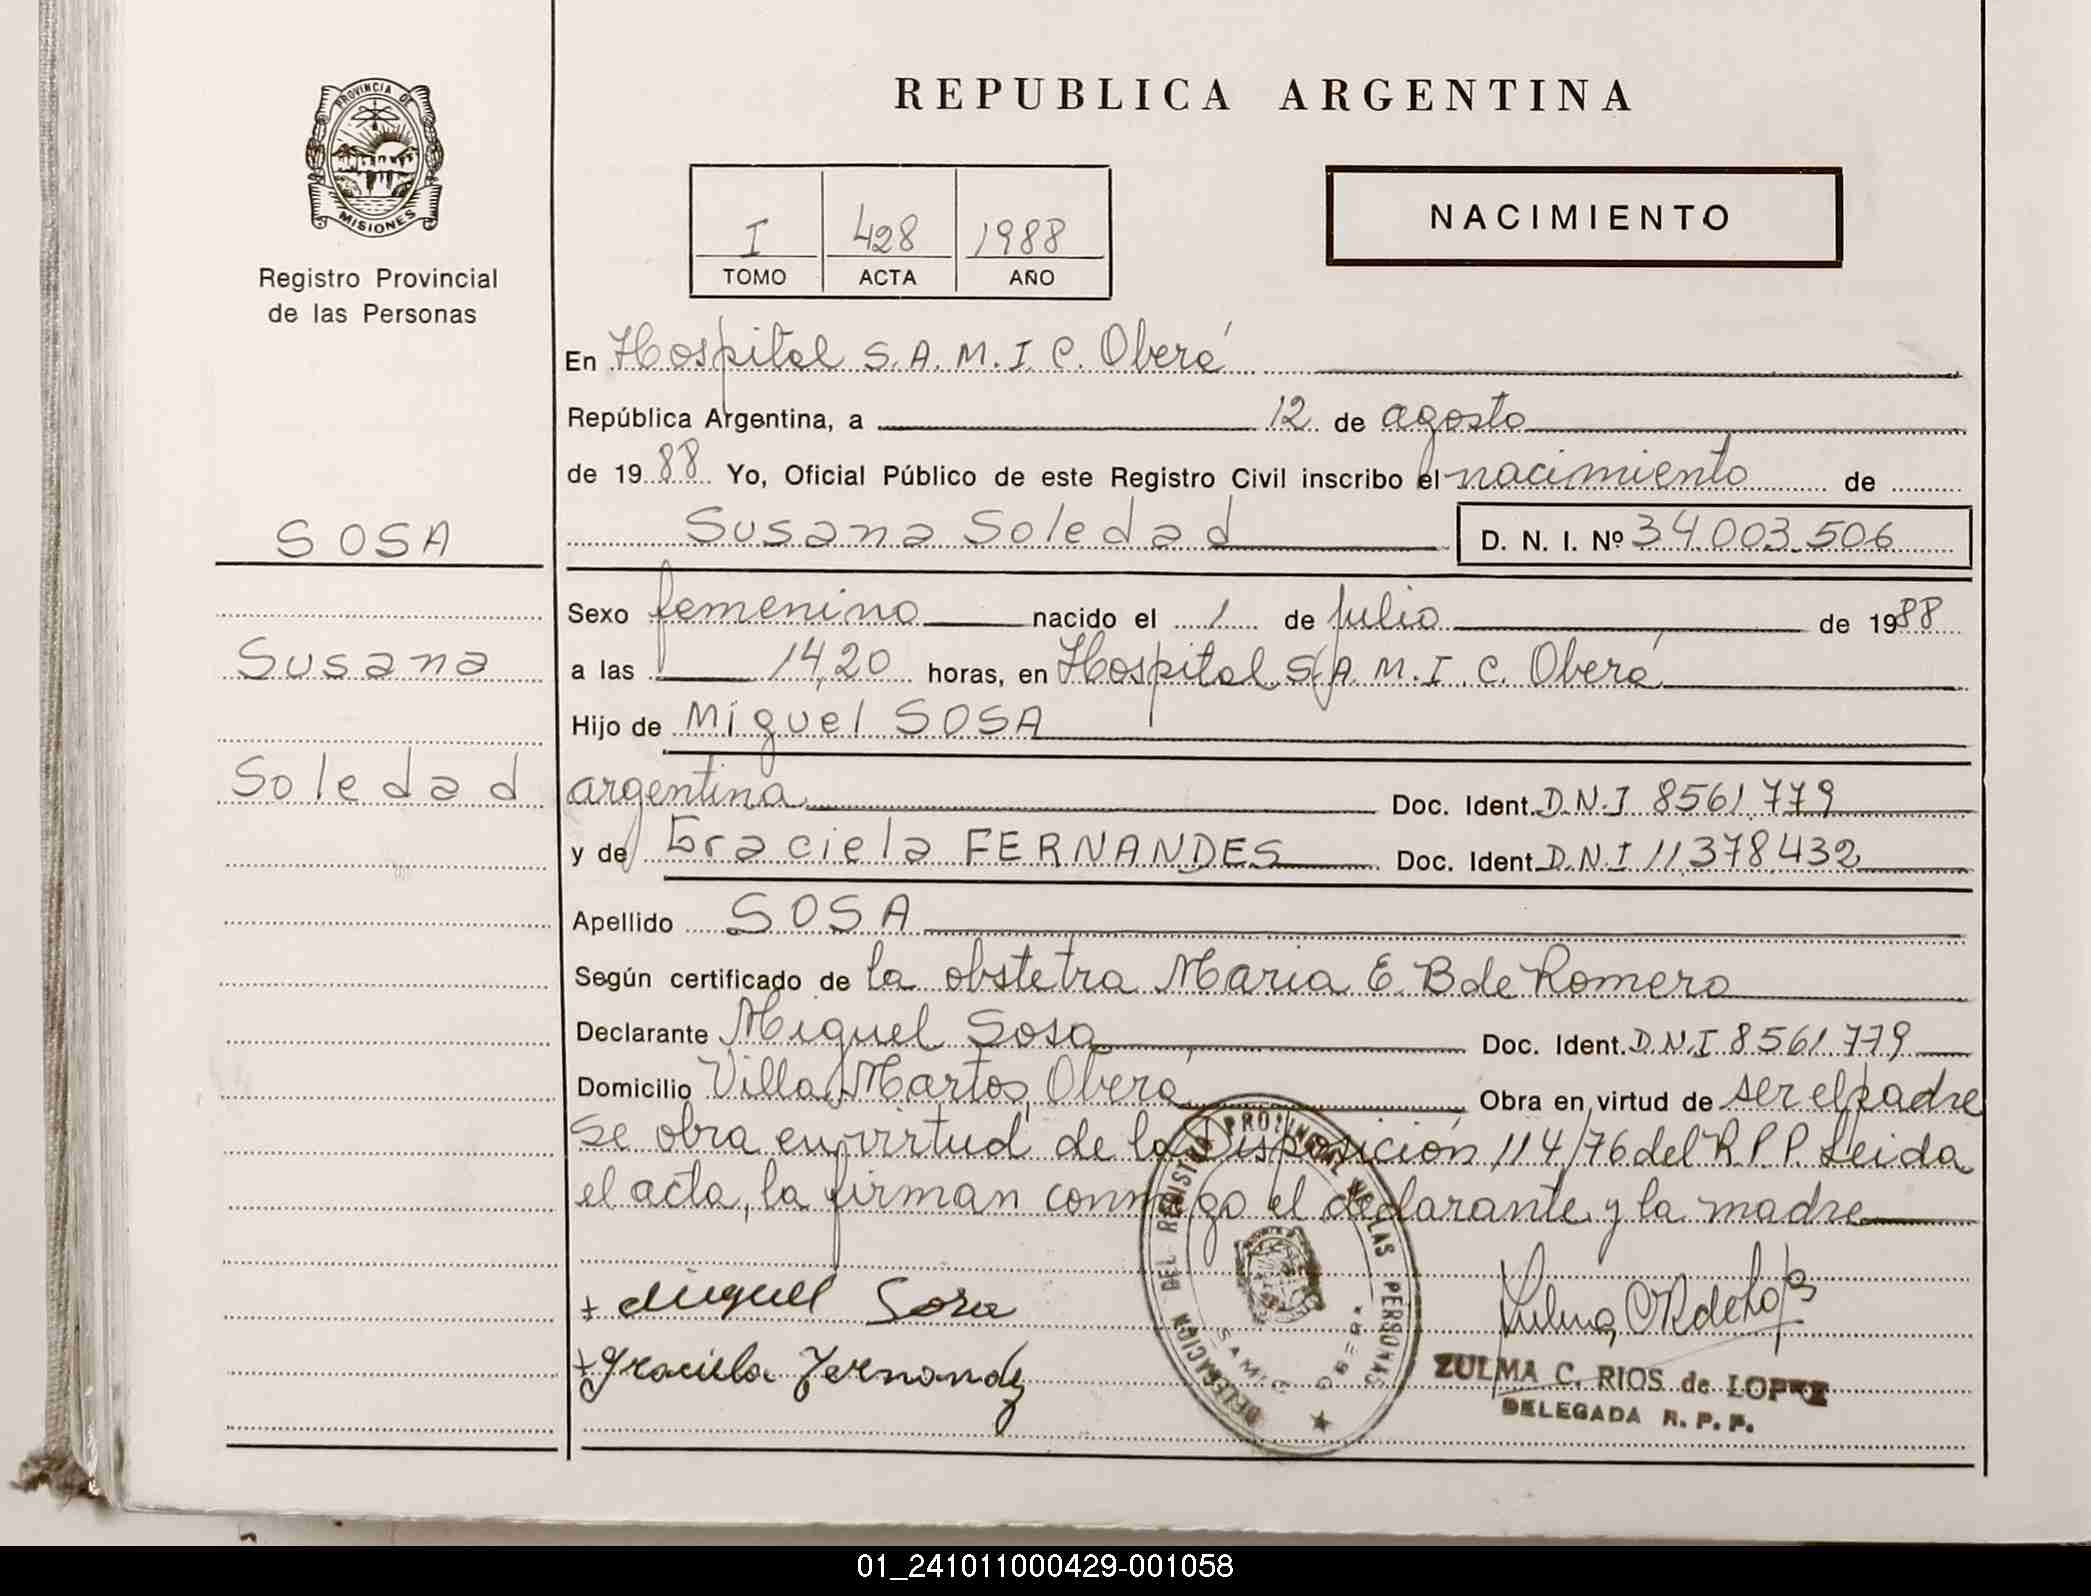 REPUBLICA ARGENTINA
PROVINCIA DE
MISIONES
Registro Provincial
de las Personas
I 428 1988
TOMO ACTA AÑO
NACIMIENTO
En Hospital S.A.M.I.C. Oberá
República Argentina, a 12 de agosto
de 1988 Yo, Oficial Público de este Registro Civil inscribo el nacimiento de
SOSA
Susana Soledad D. N. I. Nº 34.003.506
Sexo femenino nacido el 1 de julio de 1988
Susana
a las 14,20 horas, en Hospital S.A.M.I.C. Oberá
Hijo de Miguel SOSA
Soledad
argentina Doc. Ident. D.N.I 8561.779
y de Graciela FERNANDES Doc. Ident. D.N.I 11.378.432
Apellido SOSA
Según certificado de la obstetra Maria E. B de Romero
Declarante Miguel Sosa Doc. Ident. D.N.I 8561.779
Domicilio Villa Martos, Oberá Obra en virtud de ser el padre
Se obra en virtud de la Disposición 114/76 del R.P.P. Leida
el acta, la firman conmigo el declarante y la madre
DELEGACION DEL REGISTRO PROVINCIAL DE LAS PERSONAS
SAMIC OBERA
+ Miguel Sosa
+ Graciela Fernandez
ZULMA C. RIOS de LOPEZ
DELEGADA R. P. P.
01_241011000429-001058